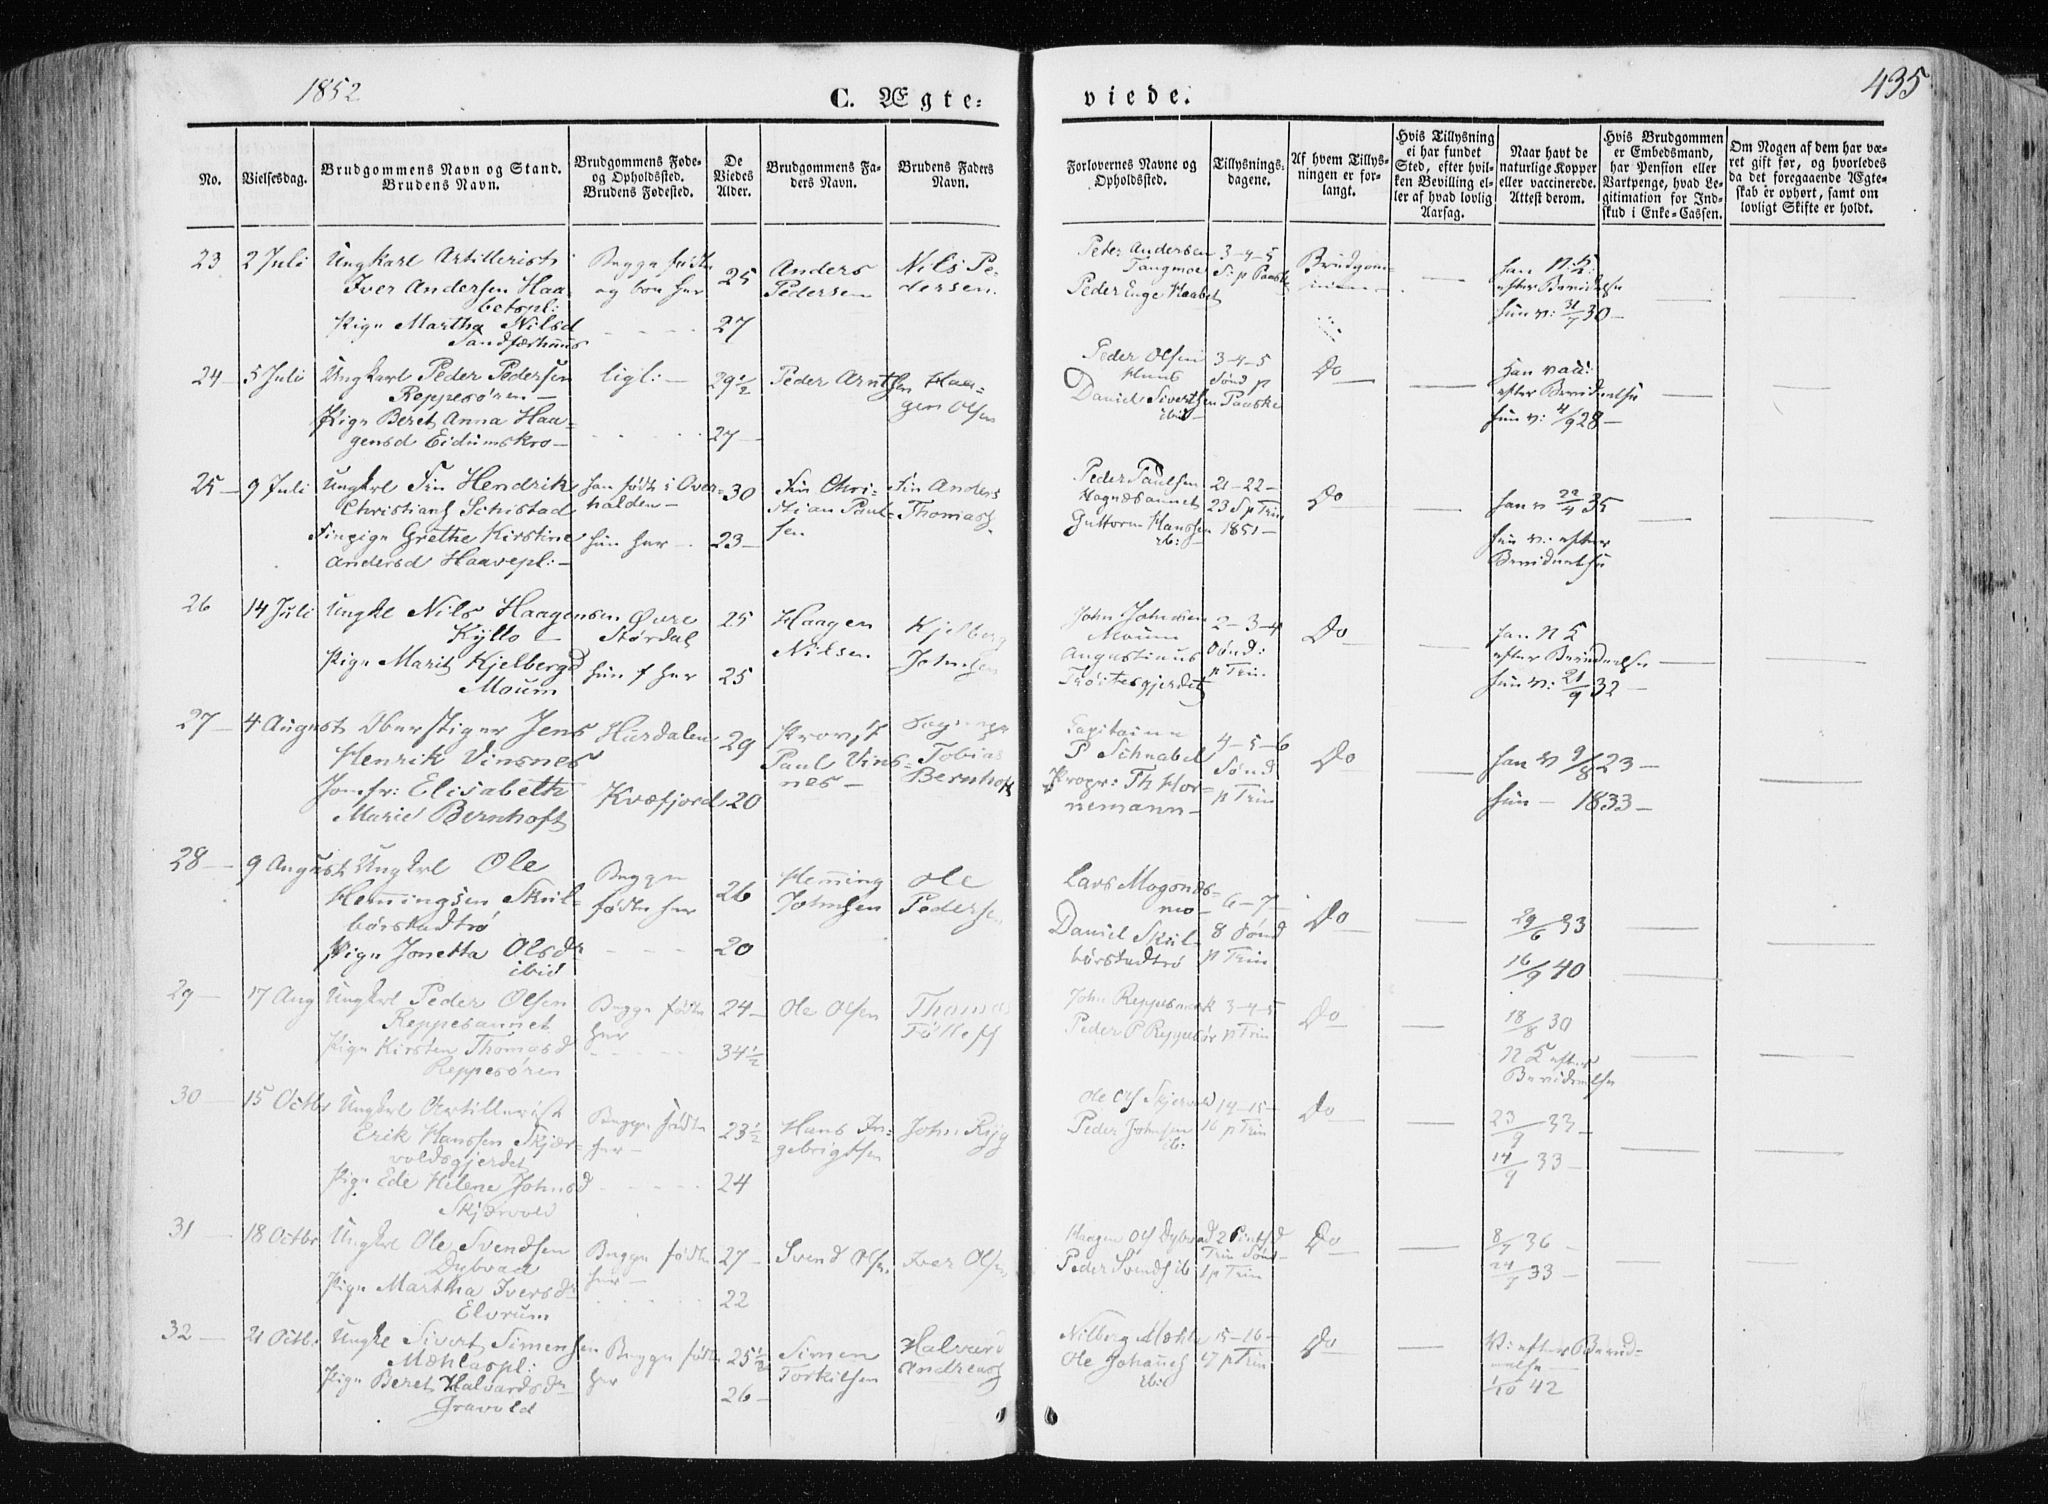 1852
C. Ægte-
viede.
435
No.
Vielsesdag.
Brudgommens Navn og Stand.
Brudens Navn.
Brudgommens Føde-
og Opholdssted.
Brudens Fødested.
De
Viedes
Alder.
Brudgommens Fa-
ders Navn.
Brudens Faders
Navn.
Forlovernes Navne og
Opholdssted.
Tillysnings-
dagene.
Af hvem Tillys-
ningen er for-
langt.
Hvis Tillysning
ei har fundet
Sted, efter hvil-
ken Bevilling el-
ler af hvad lovlig
Aarsag.
Naar havt de
naturlige Kopper
eller vaccinerede.
Attest derom.
Hvis Brudgommen
er Embedsmand,
har Pension eller
Vartpenge, hvad Le-
gitimation for Ind-
skud i Enke-Cassen.
Om Nogen af dem har væ-
ret gift før, og hvorledes
da det foregaaende Ægte-
skab er ophørt, samt om
lovligt Skifte er holdt.
23
2 Juli
Ungkarl Artillerist
Iver Andersen Haa-
betspl:
Pige Martha Nilsd
Sandfærhuus
Begge fødte
og boe her
25
27
Anders
Pedersen
Nils Pe-
dersen
Peter Andersen
Tangmoe
Peder Enge Haabet
3-4-5
S: p Paaske
Brudgom-
men
han N. K:
efter Bevidnelse
hun v: 31/7 30
24
5 Juli
Ungkarl Peder Pedersen
Reppesøren
Pige Beret Anna Haa-
gensd Eidumskro
ligl:
29 1/2
27
Peder Arntsen
Haa-
gen Olsen
Peder Olsen
Huus
Daniel Sivertsen
ibid
3-4-5
Sønd p
Paaske
Do
Han vacc:
efter Bevidnelse
hun v: 4/9 28
25
9 Juli
Ungkrl Sin Hendrik
Christians Schistad
Sinpige Grethe Kirstine
Andersd Haavepl:
han født i Over-
halden
hun her
30
23
Sin Chri-
stian Paul-
sen
Sin Anders
Thomas
Peder Paulsen
Hognesaunet
Guttorm Hanssen
ib:
21-22-
23 S p Trin
1851
Do
han v 22/4 35
hun v: efter
Bevidnelse
26
14 Juli
Ungkl Nils Haagensen
Kyllo
Pige Marit Kjelbergd
Moum
Øvre
Størdal
hun f her
25
25
Haagen
Nilsen
Kjelberg
Johnsen
John Johnsen
Moum
Augustinus
Trøitesgjerdet
2-3-4
Sønd:
p Trin
Do
han N K
efter Bevidnelse
hun v: 21/9 32
27
4 August
Oberstiger Jens
Henrik Vinsnes
Jomfr: Elisabeth
Marie Bernhoft
Hurdalen
Kvæfjord
29
20
Provst
Paul Vins-
nes
Tobias
Bernhoft
Capitaine
P Schnabel
Propr: Th Hor-
nemann
4-5-6
Sønd
p Trin
Do
han v 9/8 23
hun - 1833
28
9 August
Ungkrl Ole
Hemingsen Skul-
børstadtrø
Pige Jonetta Olsdr
ibid
Begge
fødte her
26
20
Heming
Johnsen
Ole
Pedersen
Lars Mogonds-
mo
Daniel Skul-
børstadtrø
6-7-
8 Sønd
p Trin
Do
29/6 33
16/9 40
29
17 Aug
Ungkrl Peder Olsen
Reppesaunet
Pige Kirsten Thomasd
Reppesøren
Begge fødte
her
24
34 1/2
Ole Olsen
Thomas
John Reppesmork
Peder P Reppesør
3-4-5
p Trin
Do
18/8 30
N K efter
Bevidnelse
30
15 Octbr
Ungkrl Artillerist
Erik Hanssen Skjær-
voldsgjerdet
Pige Ede Helene Johnsd
Skjærvold
Begge fødte
her
23 1/2
24
Hans In-
gebrigtsen
John Ryg
Ole Ols Skjervold
Peder Johnsen
ib:
14-15-
16 p Trin
Do
23/9 33
14/9 33
31
18 Octbr
Ungkrl Ole Svendsen
Dybvad
Pige Martha Iversdr
Elvrum
Begge fødte
her
27
22
Svend Olsen
Iver Olsen
Haagen Ols Dybvad
Peder Svends ib
Trin Sønd
1 p Trin
Do
8/7 36
24/7 33
32
21 Octbr
Ungkl Sivert Simensen
Mæhlaspl:
Pige Beret Halvardsdr
Gravold
Begge fødte
her
25 1/2
26
Simen
Torkilsen
Halvard
Andreas
Nilberg Mæhle
Ole Johannes
ib:
15-16-
17 p Trin
Do
V: efter Bevid-
nelse
1/10 42